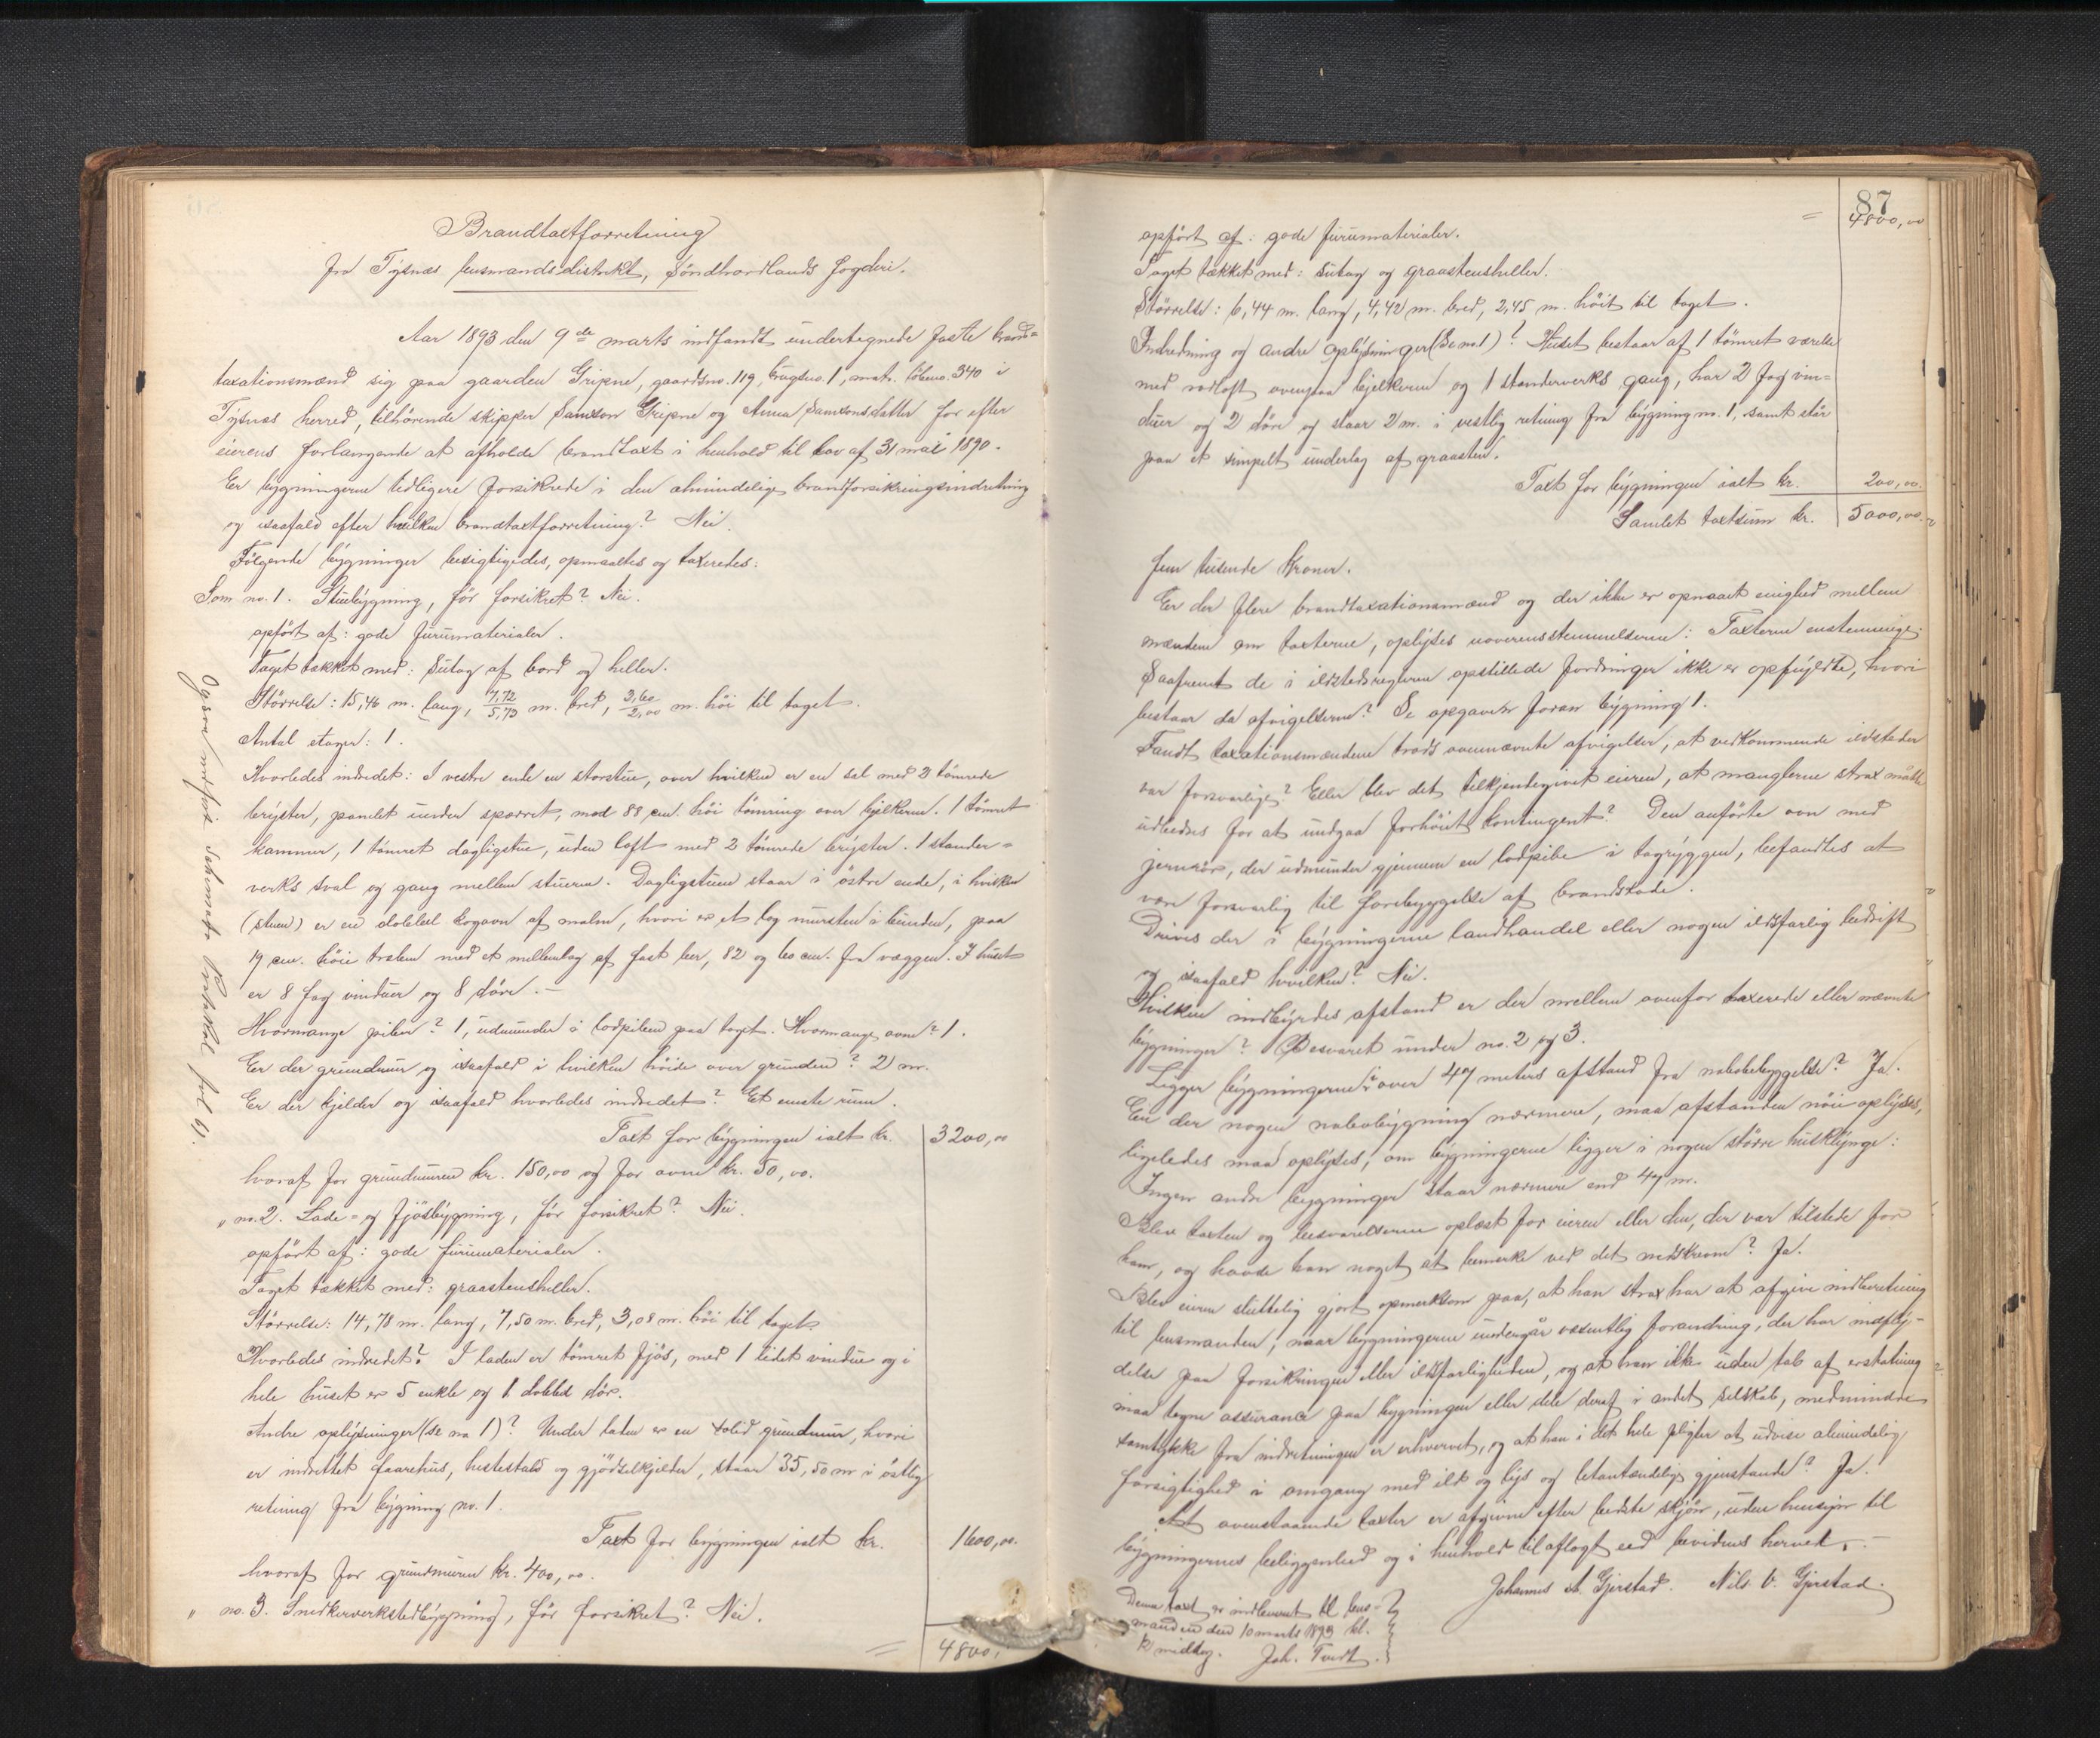 Brandtaxtforretning
fra Tysnæs lensmandsdistrikt, Søndhordlands fogderi.
Aar 1893 den 9de marts indfandt undertegnede faste brand=
taxationsmænd sig paa gaarden Gripne, gaardsno. 119, brugsno. 1, matr. løbeno. 340 i
Tysnæs herred, tilhørende skipper Samson Gripne og Anna Samsonsdatter for efter
eierens forlangende at afholde brandtaxt i henhold til lov af 31 mai 1890.
Er bygningerne tidligere forsikrede i den almindelige brandforsikringsindretning
og isaafald efter hvilken brandtaxtforretning? Nei.
Følgende bygninger besigtigedes, opmaaltes og taxeredes:
Som no. 1. Stuebygning, før forsikret? Nei.
opført af: gode furumaterialer.
Taget tækket med: Sutag af bord og heller.
Størrelse: 15,46 m. lang, 7,72/5,73 m. bred, 3,60/2,00 m. høi til taget.
Antal etager: 1.
Hvorledes indredet: I vestre ende en storstue, over hvilken er en sal med 2 tømrede
bryster, panelet under sperret, med 88 cm. høi tømring over bjelkerne. 1 tømret
kammer, 1 tømret dagligstue, uden loft med 2 tømrede bryster. 1 stander=
verks sval og gang mellem stuerne. Dagligstuen staar i østre ende, i hvilken
(stuen) er en dobbel kogovn af malm, hvori er et lag mursten i bunden, paa
19 cm. høie træben med et mellemlag af fast ler, 82 og 60 cm. fra væggen. I huset
er 8 fag vinduer og 8 døre. —
Hvormange piber? 1, udmunder i lodpiben paa taget. Hvormange ovne? 1.
Er der grundmur og isaafald i hvilken høide over grunden? 2 m.
Er der kjelder og isaafald hvorledes indredet? Et eneste rum.
Taxt for bygningen ialt kr. 3200,00
hvoraf for grundmuren kr. 150,00 og for ovne kr. 50,00.
" no. 2. Lade= og fjøsbygning, før forsikret? Nei.
opført af: gode furumaterialer.
Taget tækket med: graastensheller.
Størrelse: 14,78 m. lang, 7,50 m. bred, 3,08 m. høi til taget.
Hvorledes indredet? I laden er tømret fjøs, med 1 lidet vindue og i
hele huset er 5 enkle og 1 dobbel dør.
Andre oplysninger (se no 1)? Under laden er en solid grundmur, hvori
er indrettet faarehus, hestestald og gjødselkjelder, staar 35,50 m i østlig
retning fra bygning no. 1.
Taxt for bygningen ialt kr. 1600,00.
hvoraf for grundmuren kr. 400,00.
" no. 3. Snedkerverkstedbygning, før forsikret? Nei.
= 4800,
Ogsaa indført Schemats Protokol fol 61.
87
= 4800,00
opført af: gode furumaterialer.
Taget tækket med: Sutag og graastensheller.
Størrelse: 6,44 m. lang, 4,42 m. bred, 2,45 m. høit til taget.
Indredning og andre oplysninger (Se no. 1)? Huset bestaar af 1 tømret værelse
med rodloft ovenpaa bjelkerne og 1 standerverks gang, har 2 fag vin=
duer og 2 døre og staar 2 m. i vestlig retning fra bygning no. 1, samt står
paa et simpelt underlag af graasten.
Taxt for bygningen ialt kr. 200,00.
Samlet taxtsum kr. 5000,00.
fem tusende Kroner.
Er der flere brandtaxationsmænd og der ikke er opnaaet enighed mellem
mændene om taxterne, oplyses uoverensstemmelserne: Taxterne enstemmige.
Saafremt de i ildstedsreglerne opstillede fordringer ikke er opfyldte, hvori
bestaar da afvigelserne? Se opgaven foran bygning 1.
Fandt taxationsmændene trods ovennævnte afvigelser, at vedkommende ildsteder
var forsvarlige? Eller blev det tilkjendegivet eieren, at manglerne strax måtte
udbedres for at undgaa forhøiet kontingent? Den anførte ovn med
jernrør, der udmunder gjennem en lodpibe i tagryggen, befandtes at
være forsvarlig til forebyggelse af brandskade.
Drives der i bygningerne landhandel eller nogen ildsfarlig bedrift
og isaafald hvilken? Nei.
Hvilken indbyrdes afstand er der mellem ovenfor taxerede eller nævnte
bygninger? Besvaret under no. 2 og 3.
Ligger bygningerne i over 47 meters afstand fra nabobebyggelse? Ja.
Er der nogen nabobygning nærmere, maa afstanden nøie oplyses,
ligeledes maa oplyses, om bygningerne ligger i nogen større husklynge:
Ingen andre bygninger staar nærmere end 47 m.
Blev taxten og besvarelserne oplæst for eieren eller den, der var tilstede for
ham, og havde han noget at bemerke ved det nedskrevne? Ja.
Blev eieren sluttelig gjort opmerksom paa, at han strax har at afgive indberetning
til lensmanden, naar bygningerne undergår væsentlig forandring, der har indfly-
delse paa forsikringen eller ildsfarligheden, og at han ikke uden tab af erstatning
maa tegne assurance paa bygningen eller dele deraf i andet selskab, medmindre
samtykke fra indretningen er erhvervet, og at han i det hele pligter at udvise almindelig
forsigtighed i omgang med ild og lys og letantændelige gjenstande? Ja.
At ovenstaaende taxter er afgivne efter bedste skjøn, uden hensyn til
bygningernes beliggenhed og i henhold til aflagt eed bevidnes herved. —
Johannes A. Gjerstad. Nils O. Gjerstad.
Denne taxt er indleveret til lens=
manden den 10 marts 1893 kl.
12 middag. Joh. Tveit.